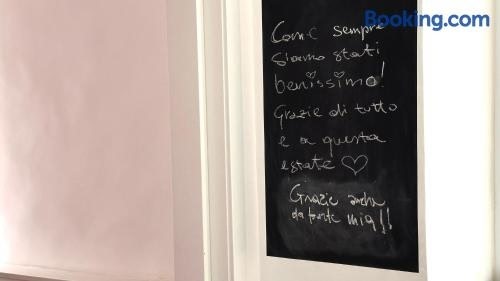 Booking.com
Come sempre
Siamo stati
benissimo!
Grazie di tutto
e a questa
estate ♡
Grazie anche
da parte mia!!